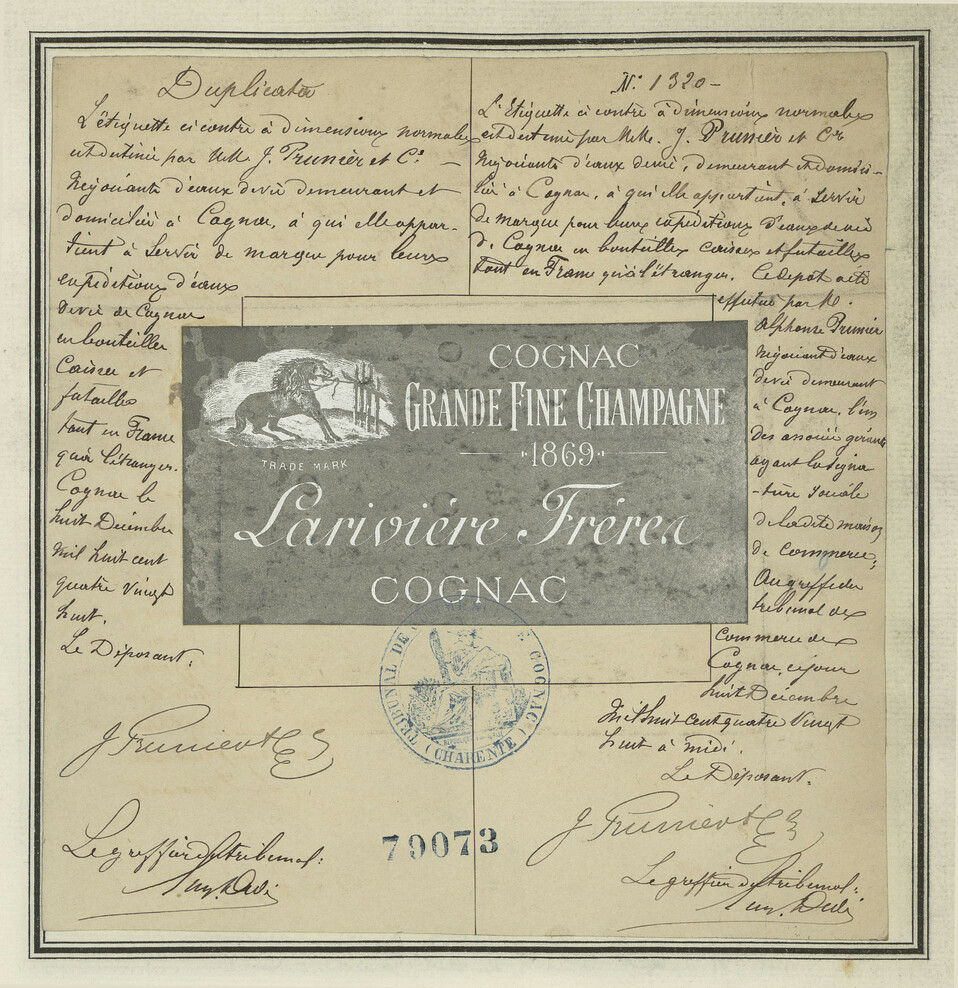 Duplicata
L'étiquette ci contre à dimensions normales
est destinée par MM. J. Prunier et Cie. —
Négociants d'eaux de vie demeurant et
domiciliés à Cognac, à qui elle appar-
tient à servir de marque pour leurs
expéditions d'eaux
de vie de Cognac
en bouteilles
Caisses et
futailles
tant en France
qu'à l'étranger.
Cognac le
huit Décembre
mil huit cent
quatre vingt
huit.
Le Déposant:
J Prunier & Cie
Le greffier du tribunal:
No. 1320 —
L'Etiquette ci contre à dimensions normales
est destinée par MM. J. Prunier et Cie
Négociants d'eaux de vie, demeurant et domici-
liés à Cognac, à qui elle appartient, à servir
de marque pour leurs expéditions d'eaux de vie
de Cognac en bouteilles caisses et futailles
tant en France qu'à l'étranger. Ce dépot a été
effectué par M.
Alphonse Prunier
Négociant d'eaux
de vie demeurant
à Cognac, l'un
des associés gérants
ayant la signa
-ture sociale
de la dite maison
de commerce,
Au greffe du
tribunal de
Commerce de
Cognac, ce jour
huit Décembre
Mil huit cent quatre vingt
huit à midi.
Le Déposant.
J Prunier & Cie
Le greffier du tribunal:
COGNAC
GRANDE FINE CHAMPAGNE
1869
TRADE MARK
Larivière Frères
COGNAC
TRIBUNAL DE COGNAC
(CHARENTE)
79073